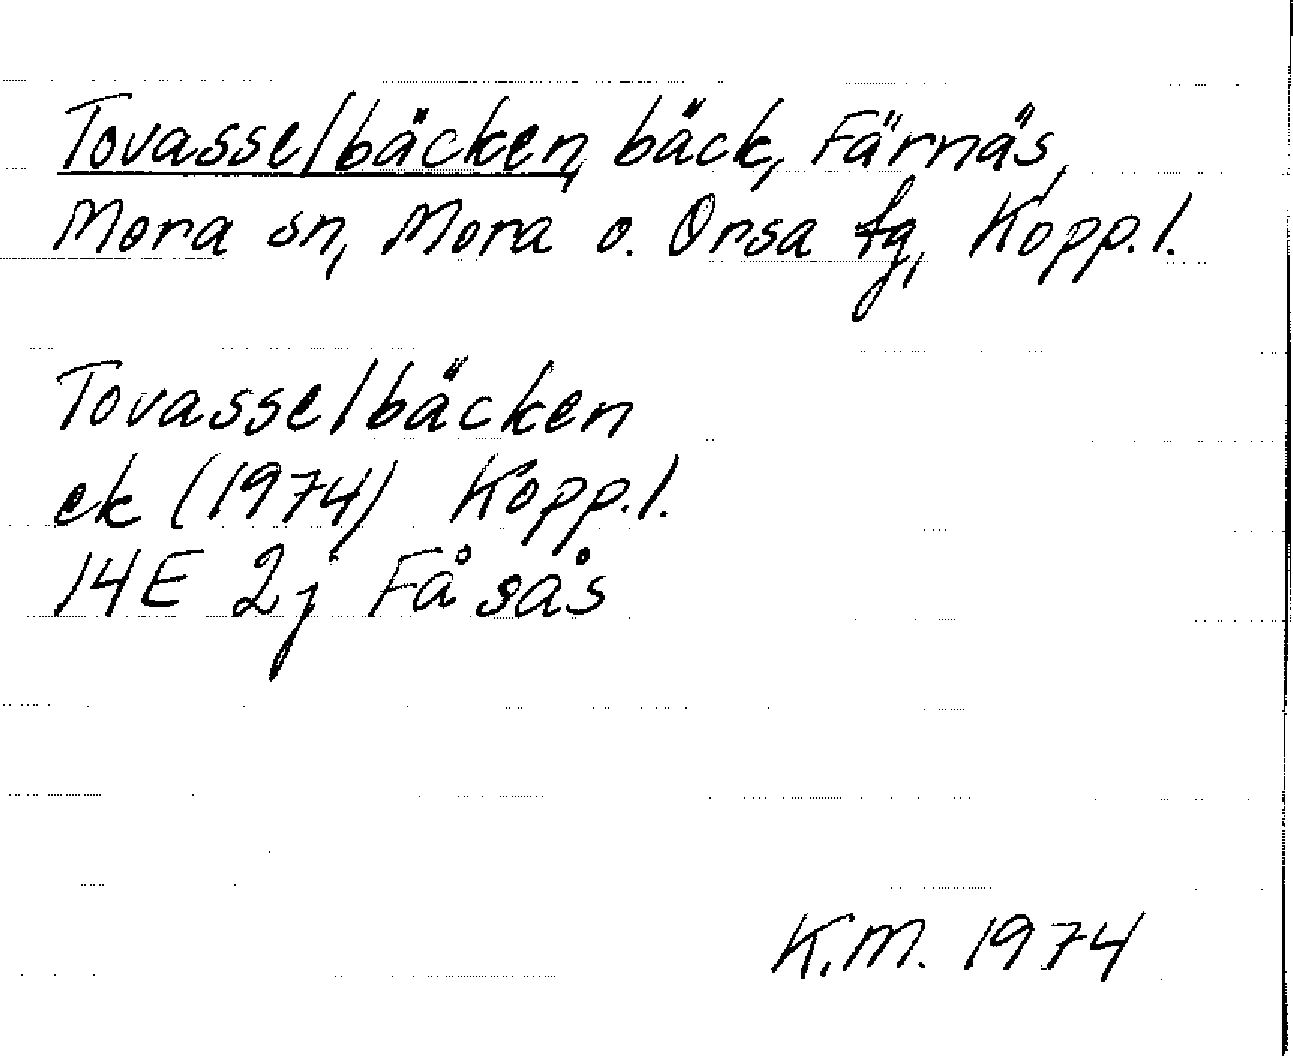 Tovasselbäcken, bäck, Färnäs,
Mora sn, Mora o. Orsa tg, Kopp.l.
Tovasselbäcken
ek (1974) Kopp.l.
14E 2j Fåsås
K.M. 1974